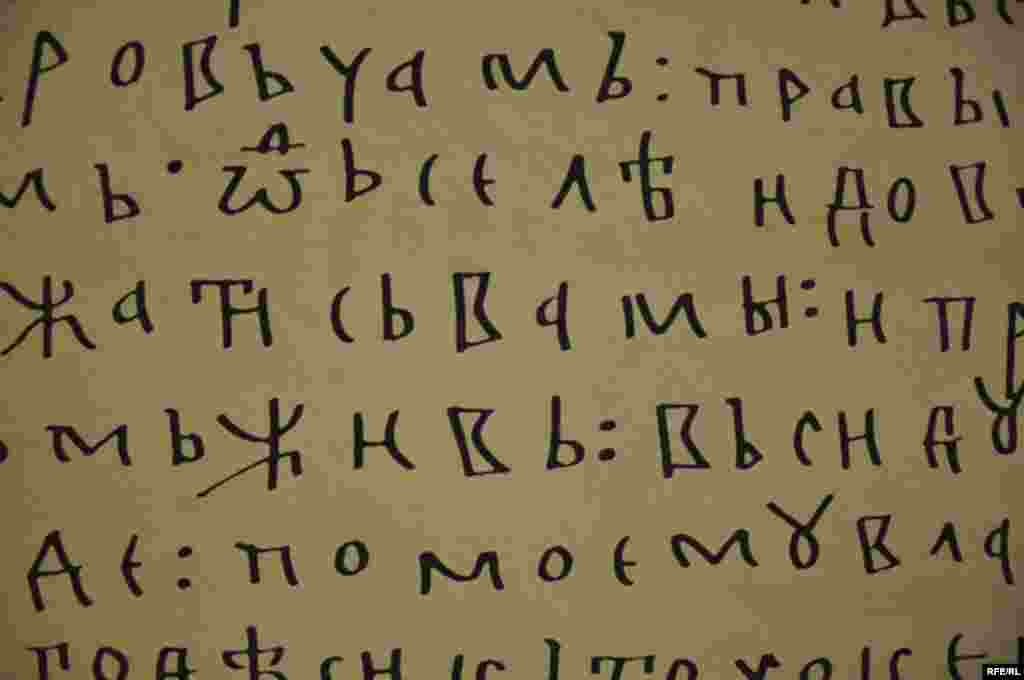 ровьчамь:правы
мь·ѿьселѣ и дов
жати сьвамы:и пр
мь живь:вьси дꙋ
де:по моемꙋ вла
годѣ
RFE/RL